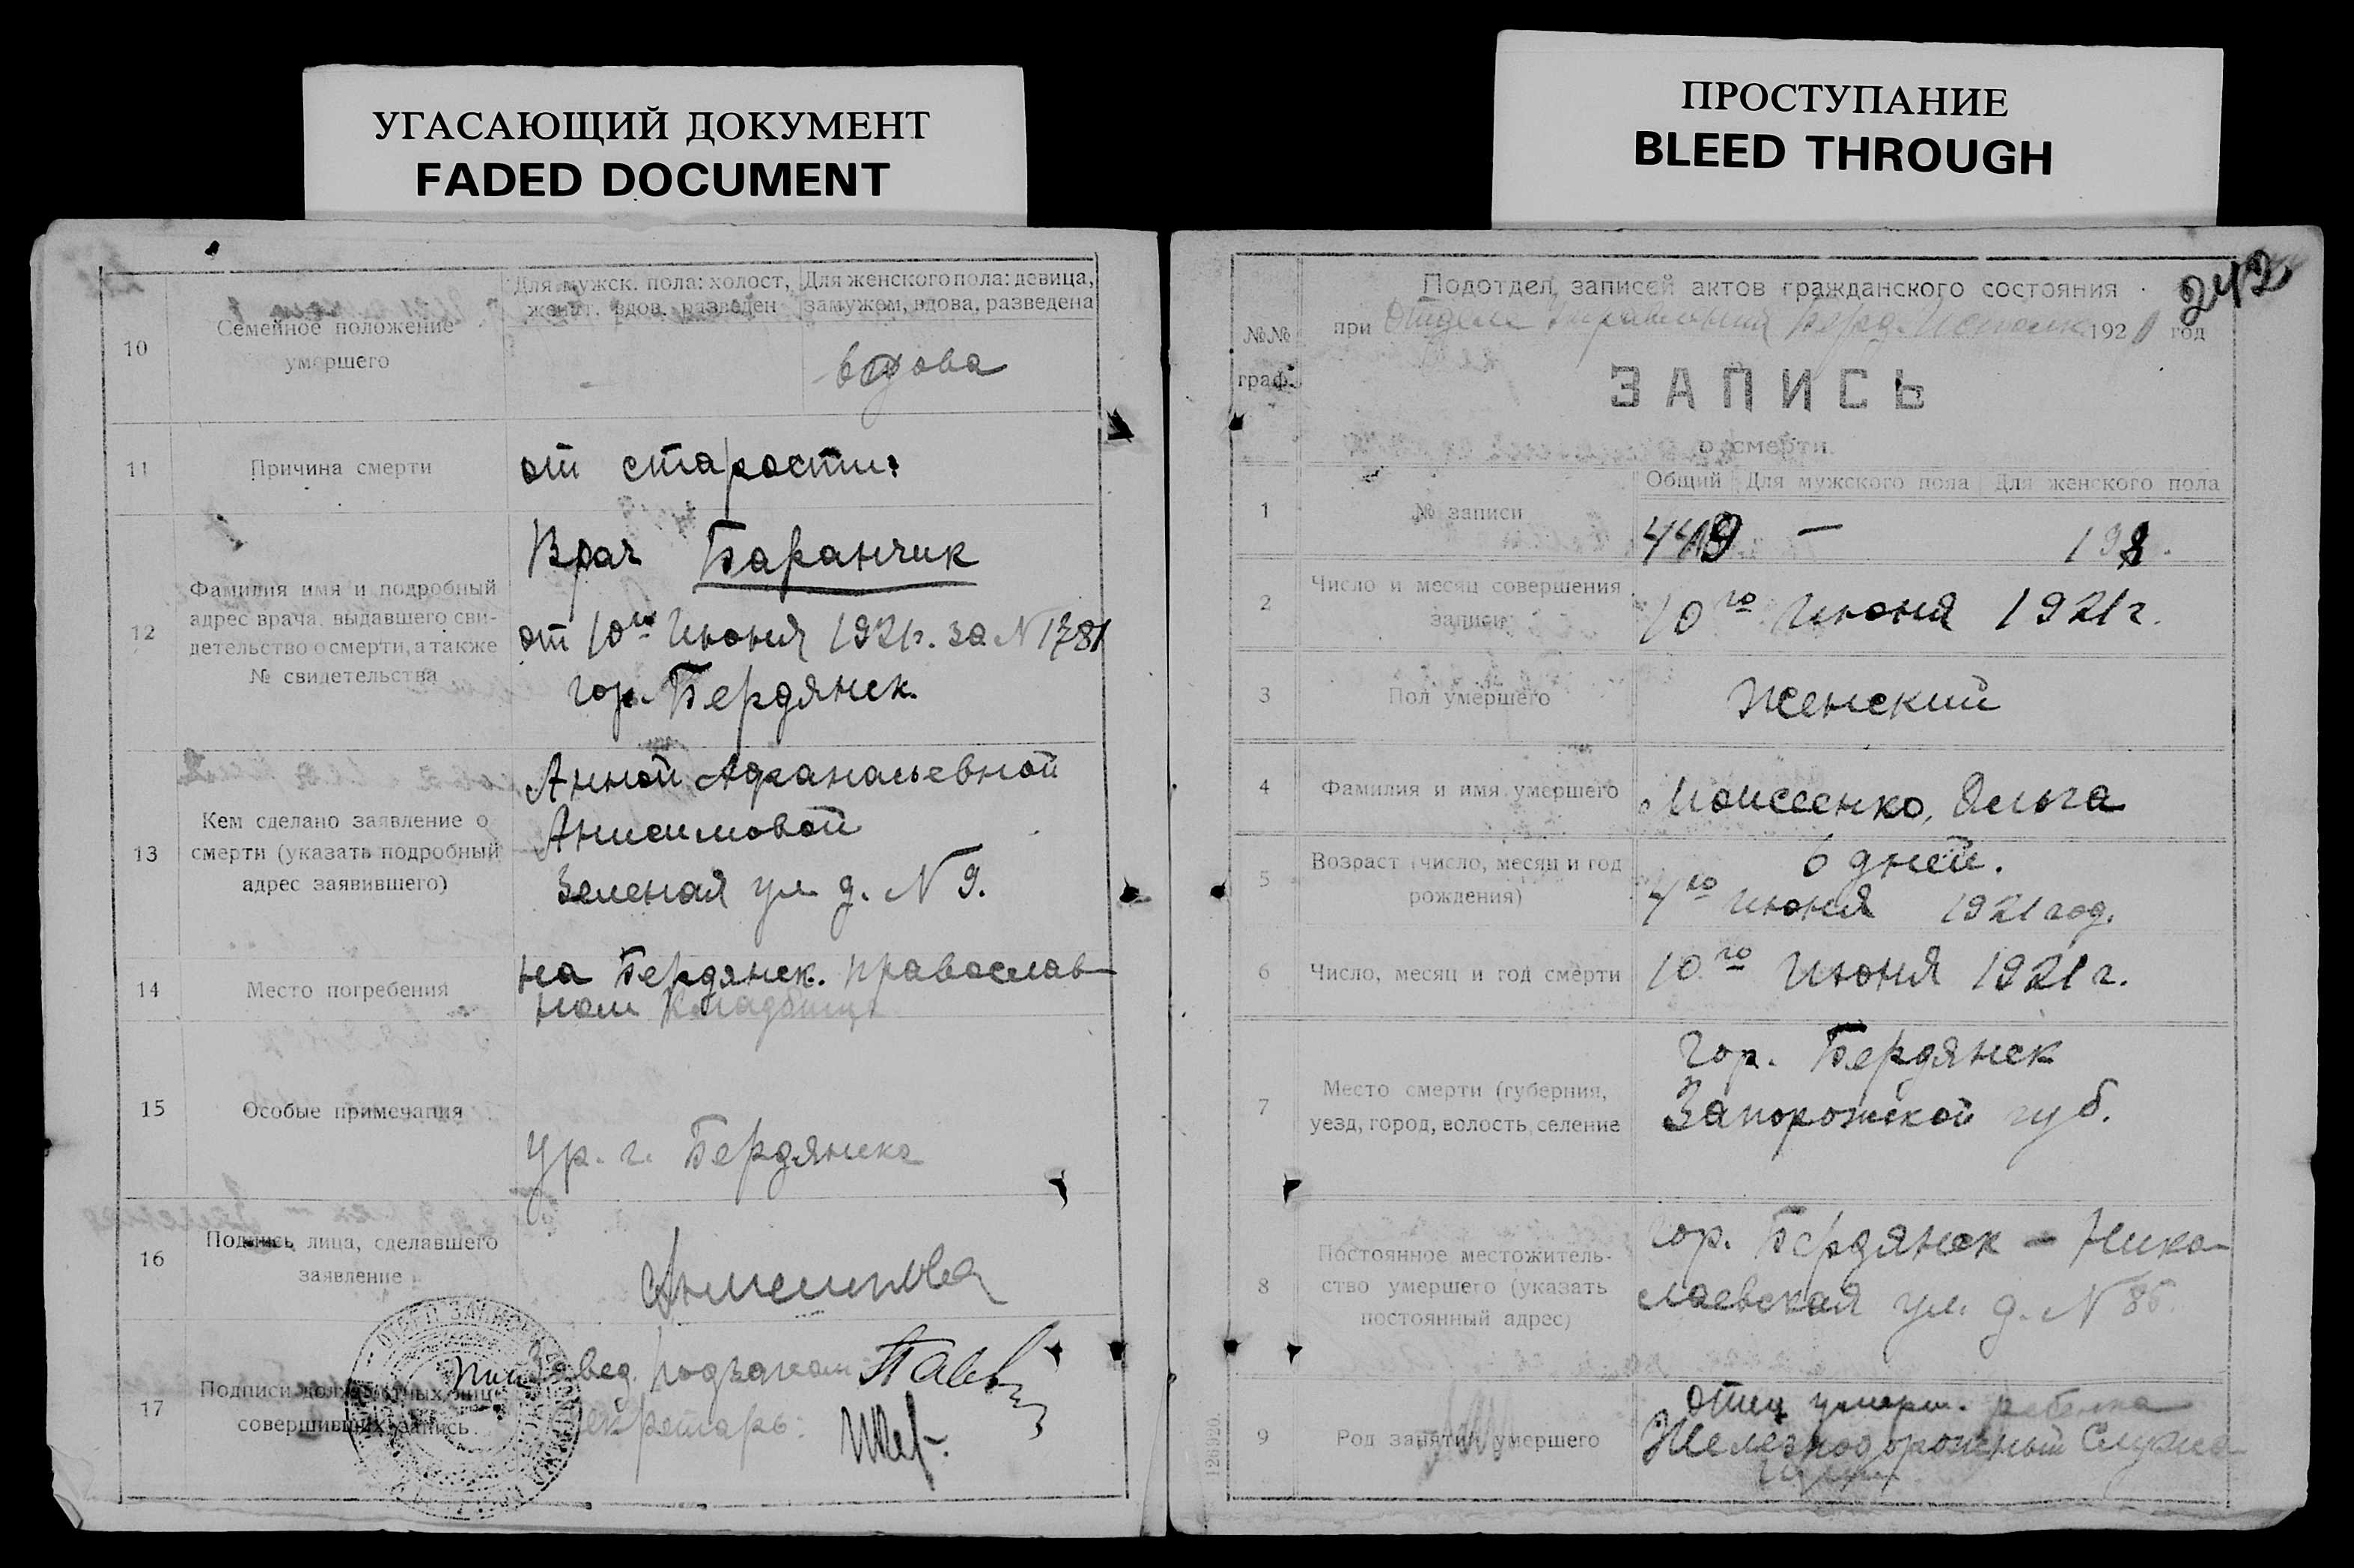 УГАСАЮЩИЙ ДОКУМЕНТ
FADED DOCUMENT
10
Семейное положение
умершего
Для мужск. пола: холост,
женат. вдов. разведен
Для женского пола: девица,
замужом, вдова, разведена
-
вдова
11
Причина смерти
от старости
12
Фамилия имя и подробный
адрес врача, выдавшего сви-
детельство о смерти, а также
№ свидетельства
Врач Баранчик
от 10го Июня 1921г. за N 1781
гор. Бердянск
13
Кем сделано заявление о
смерти (указать подробный
адрес заявившего)
Анной Афанасьевной
Анисимовой
Зеленая ул д. N 9.
14
Место погребения
на Бердянск. православ-
ном кладбище
15
Особые примечания
ур. г. Бердянска
16
Подпись лица, сделавшего
заявление
Анисимова
17
Подписи должностных лиц
совершивших запись
Завед. подзагсом
Секретарь:
ПРОСТУПАНИЕ
BLEED THROUGH
242
№№
граф.
Подотдел записей актов гражданского состояния
при Отделе Управления Берд. Исполк 1921 год
ЗАПИСЬ
о смерти
1
№ записи
Общий Для мужского пола Для женского пола
449 —
2
Число и месяц совершения
записи
10го Июня 1921г.
3
Пол умершего
Женский
4
Фамилия и имя умершего
Моисеенко, Ольга
5
Возраст (число, месяц и год
рождения)
6 дней.
4го Июня 1921 год.
6
Число, месяц и год смерти
10го Июня 1921г.
7
Место смерти (губерния,
уезд, город, волость, селение
Гор. Бердянск
Запорожской губ.
8
Постоянное местожитель-
ство умершего (указать
постоянный адрес)
гор. Бердянск - Нико-
лаевская ул. д. N 86.
9
Род занятий умершего
отец умерш. ребенка
Железнодорожный Служа-
щий